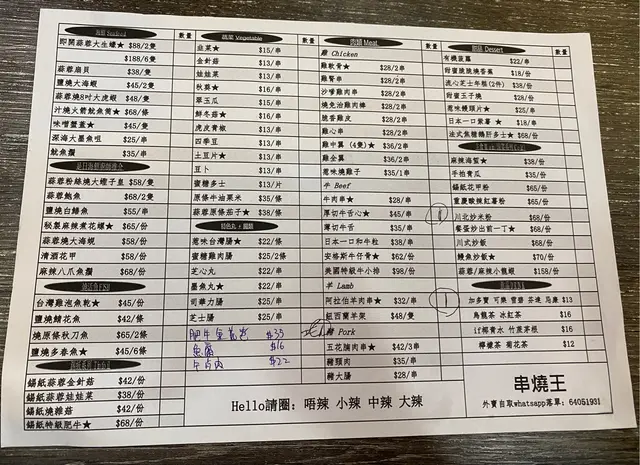 海鮮 Seafood
數量
即開蒜蓉大生蠔★ $88/2隻
$188/6隻
蒜蓉扇貝 $38/隻
鹽燒大海蝦 $45/2隻
蒜蓉燒8吋大虎蝦 $48/隻
汁燒火箭魷魚筒★ $68/條
味噌蟹蓋★ $45/隻
深海大墨魚咀 $25/串
魷魚鬚 $35/串
蒜蓉粉絲燒大蟶子皇 $58/隻
蒜蓉鮑魚 $68/2隻
鹽燒白鱔魚 $55/串
秘製麻辣煮花螺★ $65/份
蒜蓉燒大海蜆 $58/份
清酒花甲 $58/份
麻辣八爪魚鬚 $68/份
台灣雞泡魚乾★ $45/份
鹽燒鯖花魚 $42/條
燒原條秋刀魚 $65/2條
鹽燒多春魚★ $45/6條
錫紙蒜蓉金針菇 $42/份
錫紙蒜蓉娃娃菜 $38/份
錫紙燒雜菇 $42/份
錫紙特級肥牛★ $68/份
蔬菜 Vegetable
數量
韭菜★ $15/串
金針菇 $13/串
娃娃菜 $13/串
秋葵★ $16/串
翠玉瓜 $15/串
鮮冬菇★ $16/串
虎皮青椒 $13/串
四季豆 $13/串
土豆片★ $13/串
豆卜 $13/串
蜜糖多士 $13/片
原條牛油粟米 $35/條
蒜蓉原條茄子★ $38/條
葱味台灣腸 $22/條
蜜糖雞肉腸 $25/2條
芝心丸 $22/串
墨魚丸★ $22/串
司華力腸 $25/串
芝士腸 $25/串
肥牛金菇卷 $35
$16
$22
肉類 Meat
數量
雞 Chicken
雞軟骨★ $28/2串
雞腎串 $28/2串
沙嗲雞肉串 $28/2串
燒免治雞肉棒 $28/2串
脆香雞皮 $28/2串
雞心串 $28/2串
雞中翼 (4隻)★ $36/2串
雞全翼 $36/2串
葱味燒雞子 $35/1串
牛 Beef
牛肉串★ $28/串
厚切牛舌心★ $45/串
薄切牛舌 $35/串
日本一口和牛粒 $38/串
安格斯牛仔骨★ $62/份
美國特級牛小排 $98/份
羊 Lamb
阿拉伯羊肉串★ $32/串
紐西蘭羊架 $48/隻
豬 Pork
五花腩肉串★ $42/3串
豬頸肉 $35/串
豬大腸 $28/串
甜品 Dessert
數量
有機菠蘿 $22/串
甜蜜脆脆燒香蕉 $18/份
流心芝士年糕(2件) $38/份
甜蜜玉子燒 $28/份
葱味饅頭片★ $25/串
日本一口紫薯 ★ $18/串
法式焦糖鵝肝多士★ $68/份
麻辣海蜇★ $38/份
手拍青瓜 $35/份
錫紙花甲粉 $65/份
重慶酸辣紅薯粉 $65/份
① 川北炒米粉 $68/份
餐蛋炒出前一丁★ $68/份
川式炒飯 $68/份
鰻魚炒飯★ $70/份
蒜蓉/麻辣小龍蝦 $158/份
① 加多寶 可樂 雪碧 芬達 忌廉 $13
烏龍茶 冰紅茶 $16
if椰青水 竹蔗茅根 $16
檸檬茶 菊花茶 $12
Hello請圈: 唔辣 小辣 中辣 大辣
串燒王
外賣自取whatsapp落單: 64051931